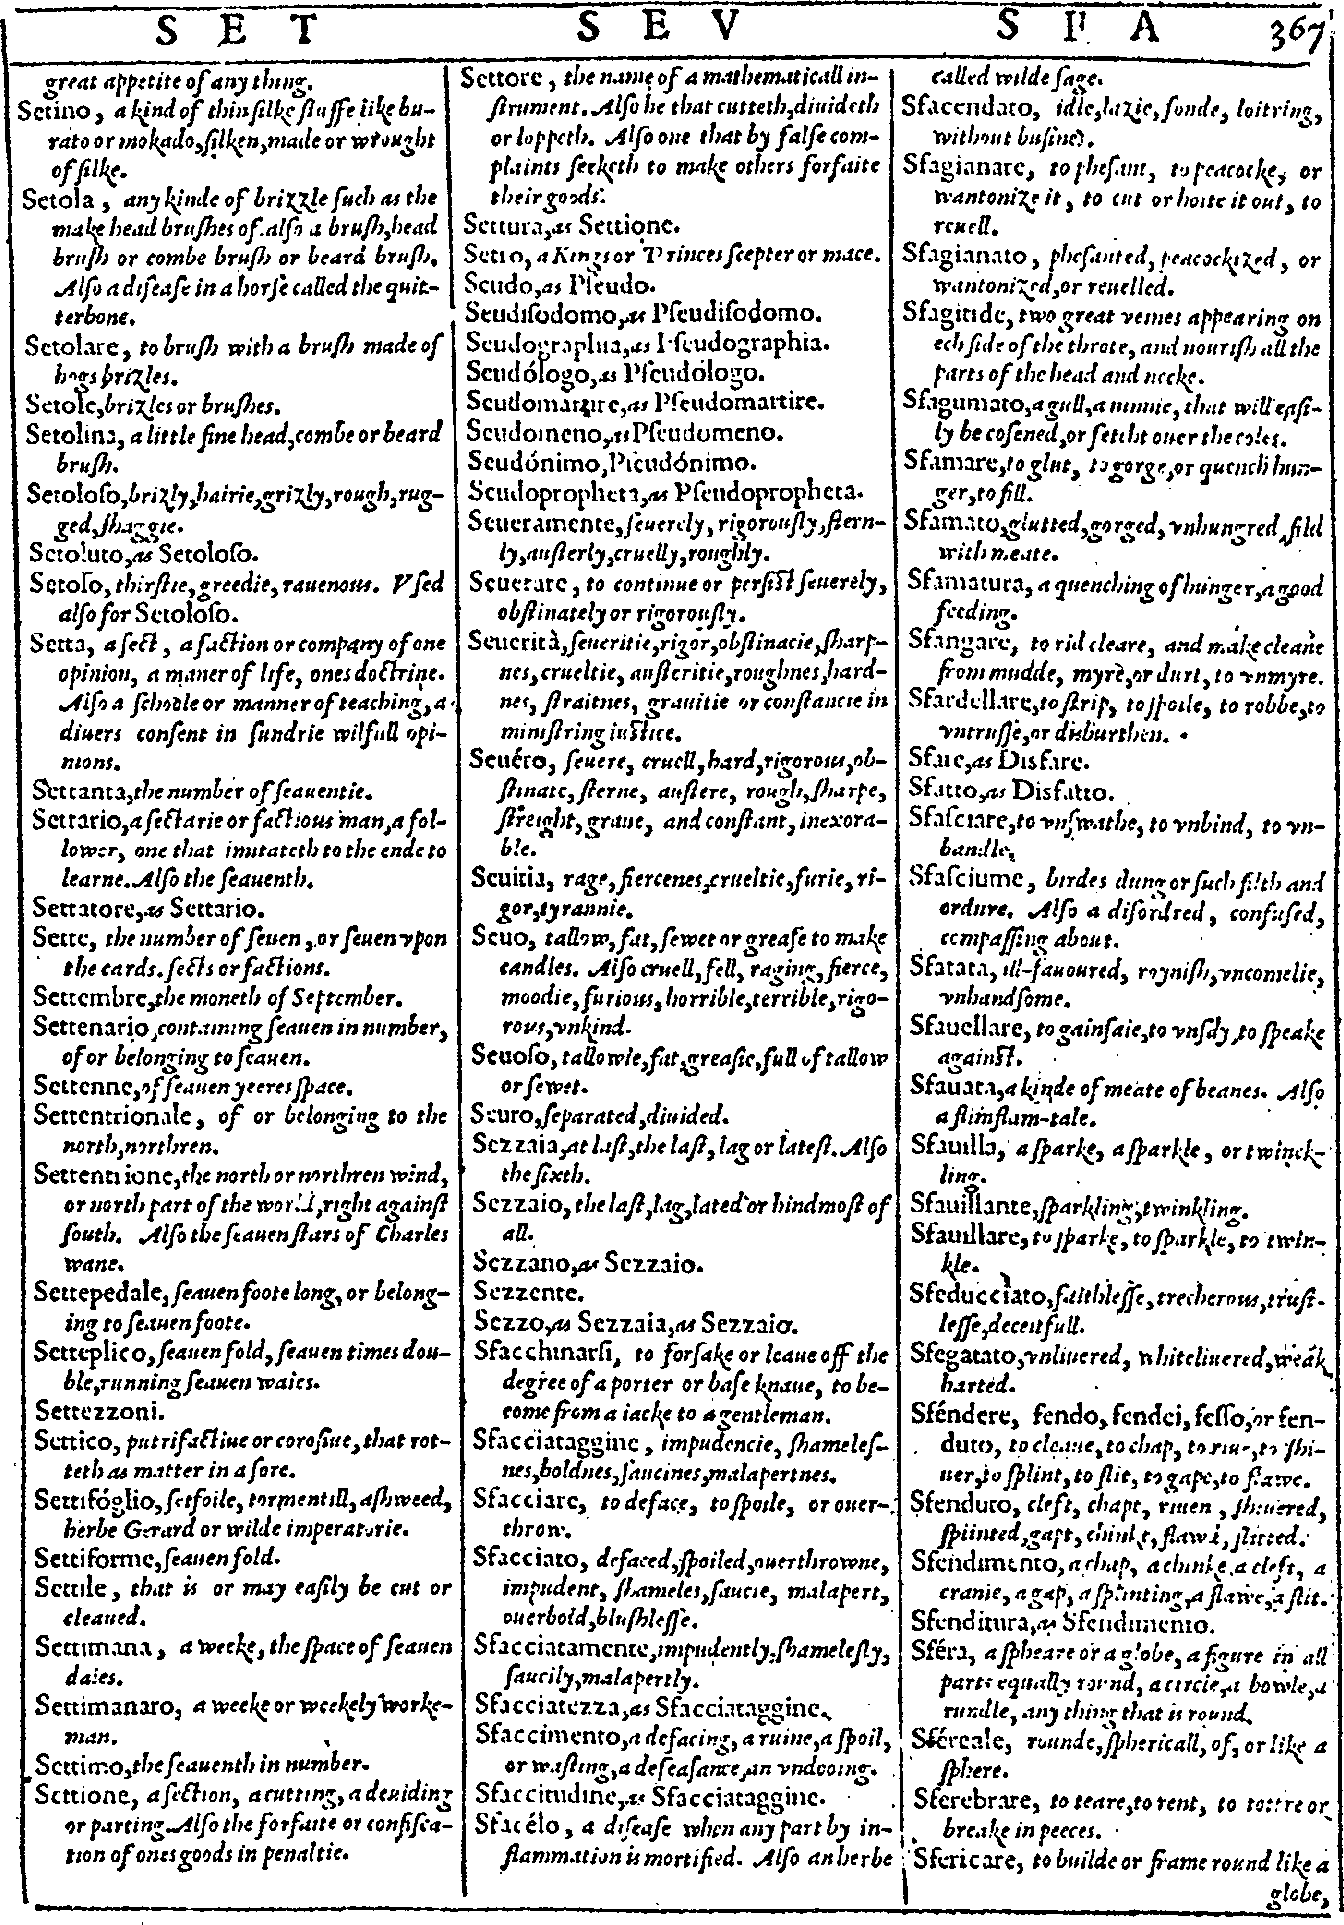 SET SEV SFA 367
great appetite of any thing.
Setino, a kind of thin silke stuffe like bu-
rato or mokado, silken, made or wrought
of silke.
Setola, any kinde of brizzle such as the
make head brushes of. also a brush, head
brush or combe brush or beard brush.
Also a disease in a horse called the quit-
terbone.
Setolare, to brush with a brush made of
hogs brizles.
Setole, brizles or brushes.
Setolina, a little fine head, combe or beard
brush.
Setoloso, brizly, hairie, grizly, rough, rug-
ged, shaggie.
Setoluto, as Setoloso.
Setoso, thirstie, greedie, rauenous. Vsed
also for Setoloso.
Setta, a sect, a faction or company of one
opinion, a maner of life, ones doctrine.
Also a schoole or manner of teaching, a
diuers consent in sundrie wilfull opi-
nions.
Settanta, the number of seauentie.
Settario, a sectarie or factious man, a fol-
lower, one that imitateth to the ende to
learne. Also the seauenth.
Settatore, as Settario.
Sette, the number of seuen, or seuen vpon
the cards. sects or factions.
Settembre, the moneth of September.
Settenario, containing seauen in number,
of or belonging to seauen.
Settenne, of seauen yeeres space.
Settentrionale, of or belonging to the
north, northren.
Settentrione, the north or northren wind,
or north part of the world, right against
south. Also the seauen stars of Charles
wane.
Settepedale, seauen foote long, or belong-
ing to seauen foote.
Setteplico, seauen fold, seauen times dou-
ble, running seauen waies.
Settezzoni.
Settico, putrifactiue or corosiue, that rot-
teth as matter in a sore.
Settifóglio, setfoile, tormentill, ashweed,
herbe Gerard or wilde imperatorie.
Settiforme, seauen fold.
Settile, that is or may easily be cut or
cleaued.
Settimana, a weeke, the space of seauen
daies.
Settimanaro, a weeke or weekely worke-
man.
Settimo, the seauenth in number.
Settione, a section, a cutting, a deuiding
or parting. Also the forfaite or confisca-
tion of ones goods in penaltie.
Settore, the name of a mathematicall in-
strument. Also he that cutteth, diuideth
or loppeth. Also one that by false com-
plaints seeketh to make others forfaite
their goods.
Settura, as Settione.
Setto, a Kings or Princes scepter or mace.
Seudo, as Pseudo.
Seudisodomo, as Pseudisodomo.
Seudographia, as Pseudographia.
Seudólogo, as Pseudólogo.
Seudomartire, as Pseudomartire.
Seudomeno, as Pseudomeno.
Seudónimo, Pseudónimo.
Seudopropheta, as Pseudopropheta.
Seueramente, seuerely, rigorously, stern-
ly, austerly, cruelly, roughly.
Seuerare, to continue or persist seuerely,
obstinately or rigorously.
Seuerità, seueritie, rigor, obstinacie, sharp-
nes, crueltie, austeritie, roughnes, hard-
nes, straitnes, grauitie or constancie in
ministring iustice.
Seuéro, seuere, cruell, hard, rigorous, ob-
stinate, sterne, austere, rough, sharpe,
streight, graue, and constant, inexora-
ble.
Seuitia, rage, fiercenes, crueltie, furie, ri-
gor, tyrannie.
Seuo, tallow, fat, sewet or grease to make
candles. Also cruell, fell, raging, fierce,
moodie, furious, horrible, terrible, rigo-
rous, vnkind.
Seuoso, tallowie, fat, greasie, full of tallow
or sewet.
Seuro, separated, diuided.
Sezzaia, at last, the last, lag or latest. Also
the sixth.
Sezzaio, the last, lag, lated or hindmost of
all.
Sezzano, as Sezzaio.
Sezzente.
Sezzo, as Sezzaia, as Sezzaio.
Sfacchinarsi, to forsake or leaue off the
degree of a porter or base knaue, to be-
come from a iacke to a gentleman.
Sfacciataggine, impudencie, shameles-
nes, boldnes, saucines, malapertnes.
Sfacciare, to deface, to spoile, or ouer-
throw.
Sfacciato, defaced, spoiled, ouerthrowne,
impudent, shameles, saucie, malapert,
ouerbold, blushlesse.
Sfacciatamente, impudently, shamelesly,
saucily, malapertly.
Sfacciatezza, as Sfacciataggine.
Sfaccimento, a defacing, a ruine, a spoil,
or wasting, a defeasance, an vndooing.
Sfaccitudine, as Sfacciataggine.
Sfacélo, a disease when any part by in-
flammation is mortified. Also an herbe
called wilde sage.
Sfaccendato, idle, lazie, fonde, loitring,
without busines.
Sfagianare, to phesant, to peacocke, or
wantonize it, to cut or hoite it out, to
reuell.
Sfagianato, phesanted, peacockized, or
wantonized, or reuelled.
Sfagitide, two great veines appearing on
ech side of the throte, and nourish all the
parts of the head and necke.
Sfagiumato, a gull, a ninnie, that will easi-
ly be cosened, or fetcht ouer the coles.
Sfamare, to glut, to gorge, or quench hun-
ger, to fill.
Sfamato, glutted, gorged, vnhungred, fild
with meate.
Sfamatura, a quenching of hunger, a good
feeding.
Sfangare, to rid cleare, and make cleane
from mudde, myre, or durt, to vnmyre.
Sfardellare, to strip, to spoile, to robbe, to
vntrusse, or disburthen.
Sfare, as Disfare.
Sfatto, as Disfatto.
Sfasciare, to vnswathe, to vnbind, to vn-
bandle.
Sfasciume, birdes dung or such filth and
ordure. Also a disordred, confused,
compassing about.
Sfatata, ill-fauoured, roynish, vncomelie,
vnhandsome.
Sfauellare, to gainsaie, to vnsay, to speake
against.
Sfauata, a kinde of meate of beanes. Also
a flimflam-tale.
Sfauilla, a sparke, a sparkle, or twinck-
ling.
Sfauillante, sparkling, twinkling.
Sfauillare, to sparke, to sparkle, to twin-
kle.
Sfeducciato, faithlesse, trecherous, trust-
lesse, deceitfull.
Sfegatato, vnliuered, whiteliuered, weak
harted.
Sféndere, fendo, fendei, fesso, or fen-
duto, to cleaue, to chap, to riue, to shi-
uer, to splint, to slit, to gape, to flawe.
Sfenduto, cleft, chapt, riuen, shiuered,
splinted, gapt, chinkt, flawd, slitted.
Sfendimento, a chap, a chinke, a cleft, a
cranie, a gap, a splinting, a flawe, a slit.
Sfenditura, as Sfendimento.
Sféra, a spheare or a globe, a figure in all
parts equally round, a circle, a bowle, a
rundle, any thing that is round.
Sféreale, rounde, sphericall, of, or like a
sphere.
Sferebrare, to teare, to rent, to tottre or
breake in peeces.
Sfericare, to builde or frame round like a
globe,